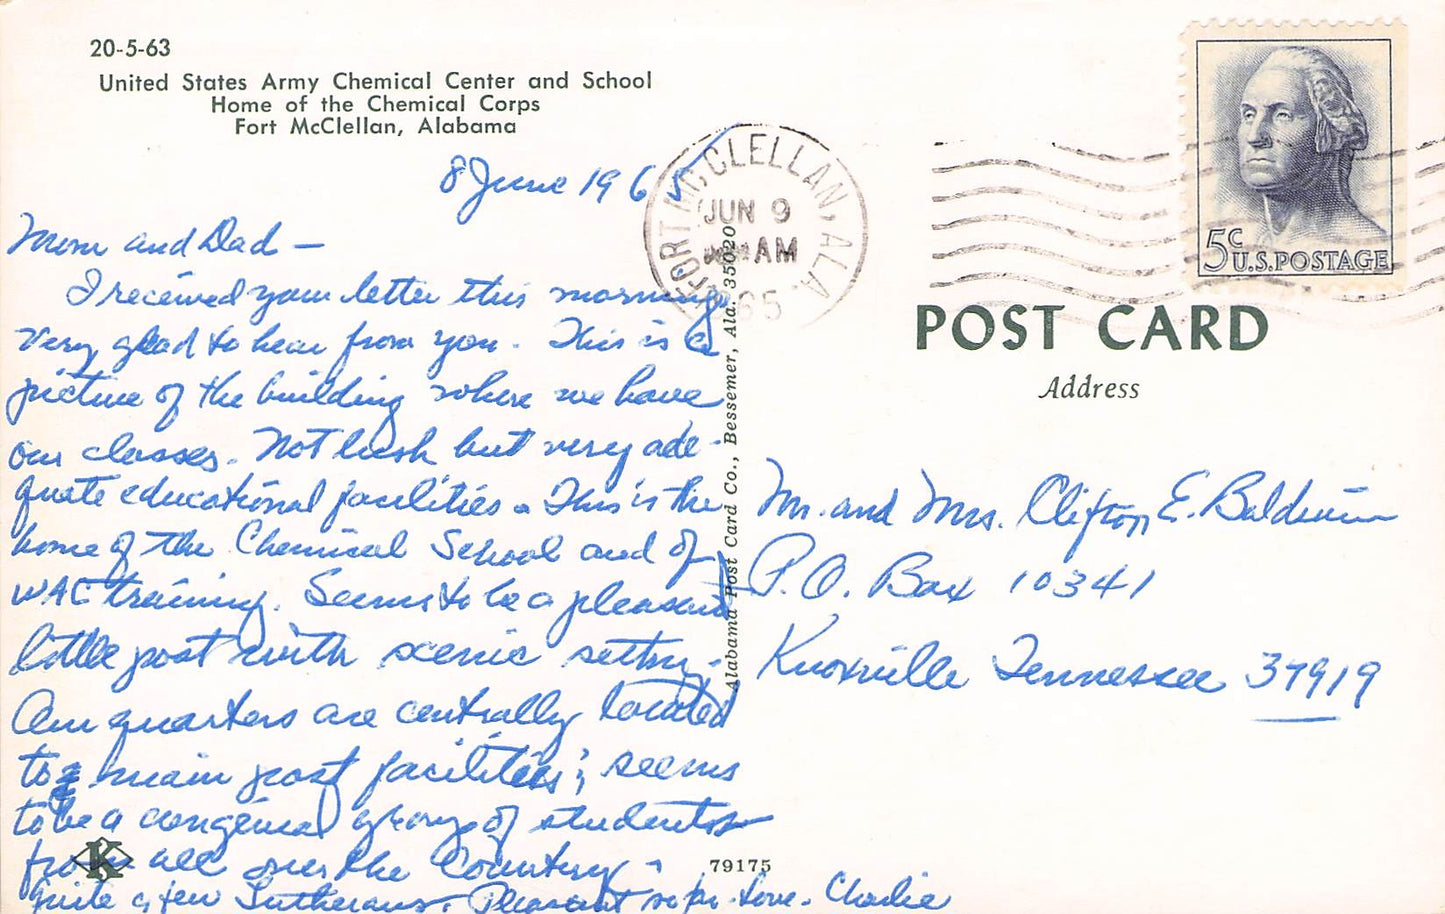 20-5-63
United States Army Chemical Center and School
Home of the Chemical Corps
Fort McClellan, Alabama
8 June 1965
Mom and Dad —
I received your letter this morning.
Very glad to hear from you. This is a
picture of the building where we have
our classes. Not lush but very ade-
quate educational facilities. This is the
home of the Chemical School and of
WAC training. Seems to be a pleasant
little post with scenic setting.
Our quarters are centrally located
to main post facilities; seems
to be a congenial group of students
from all over the Country -
Quite a few Lutherans. Pleasant so far. Love. Charlie
K
79175
Alabama Post Card Co., Bessemer, Ala. 35020
FORT MC CLELLAN, ALA.
JUN 9
AM
65
5c
U.S. POSTAGE
POST CARD
Address
Mr. and Mrs. Clifton E. Baldwin
P.O. Box 10341
Knoxville Tennessee 37919